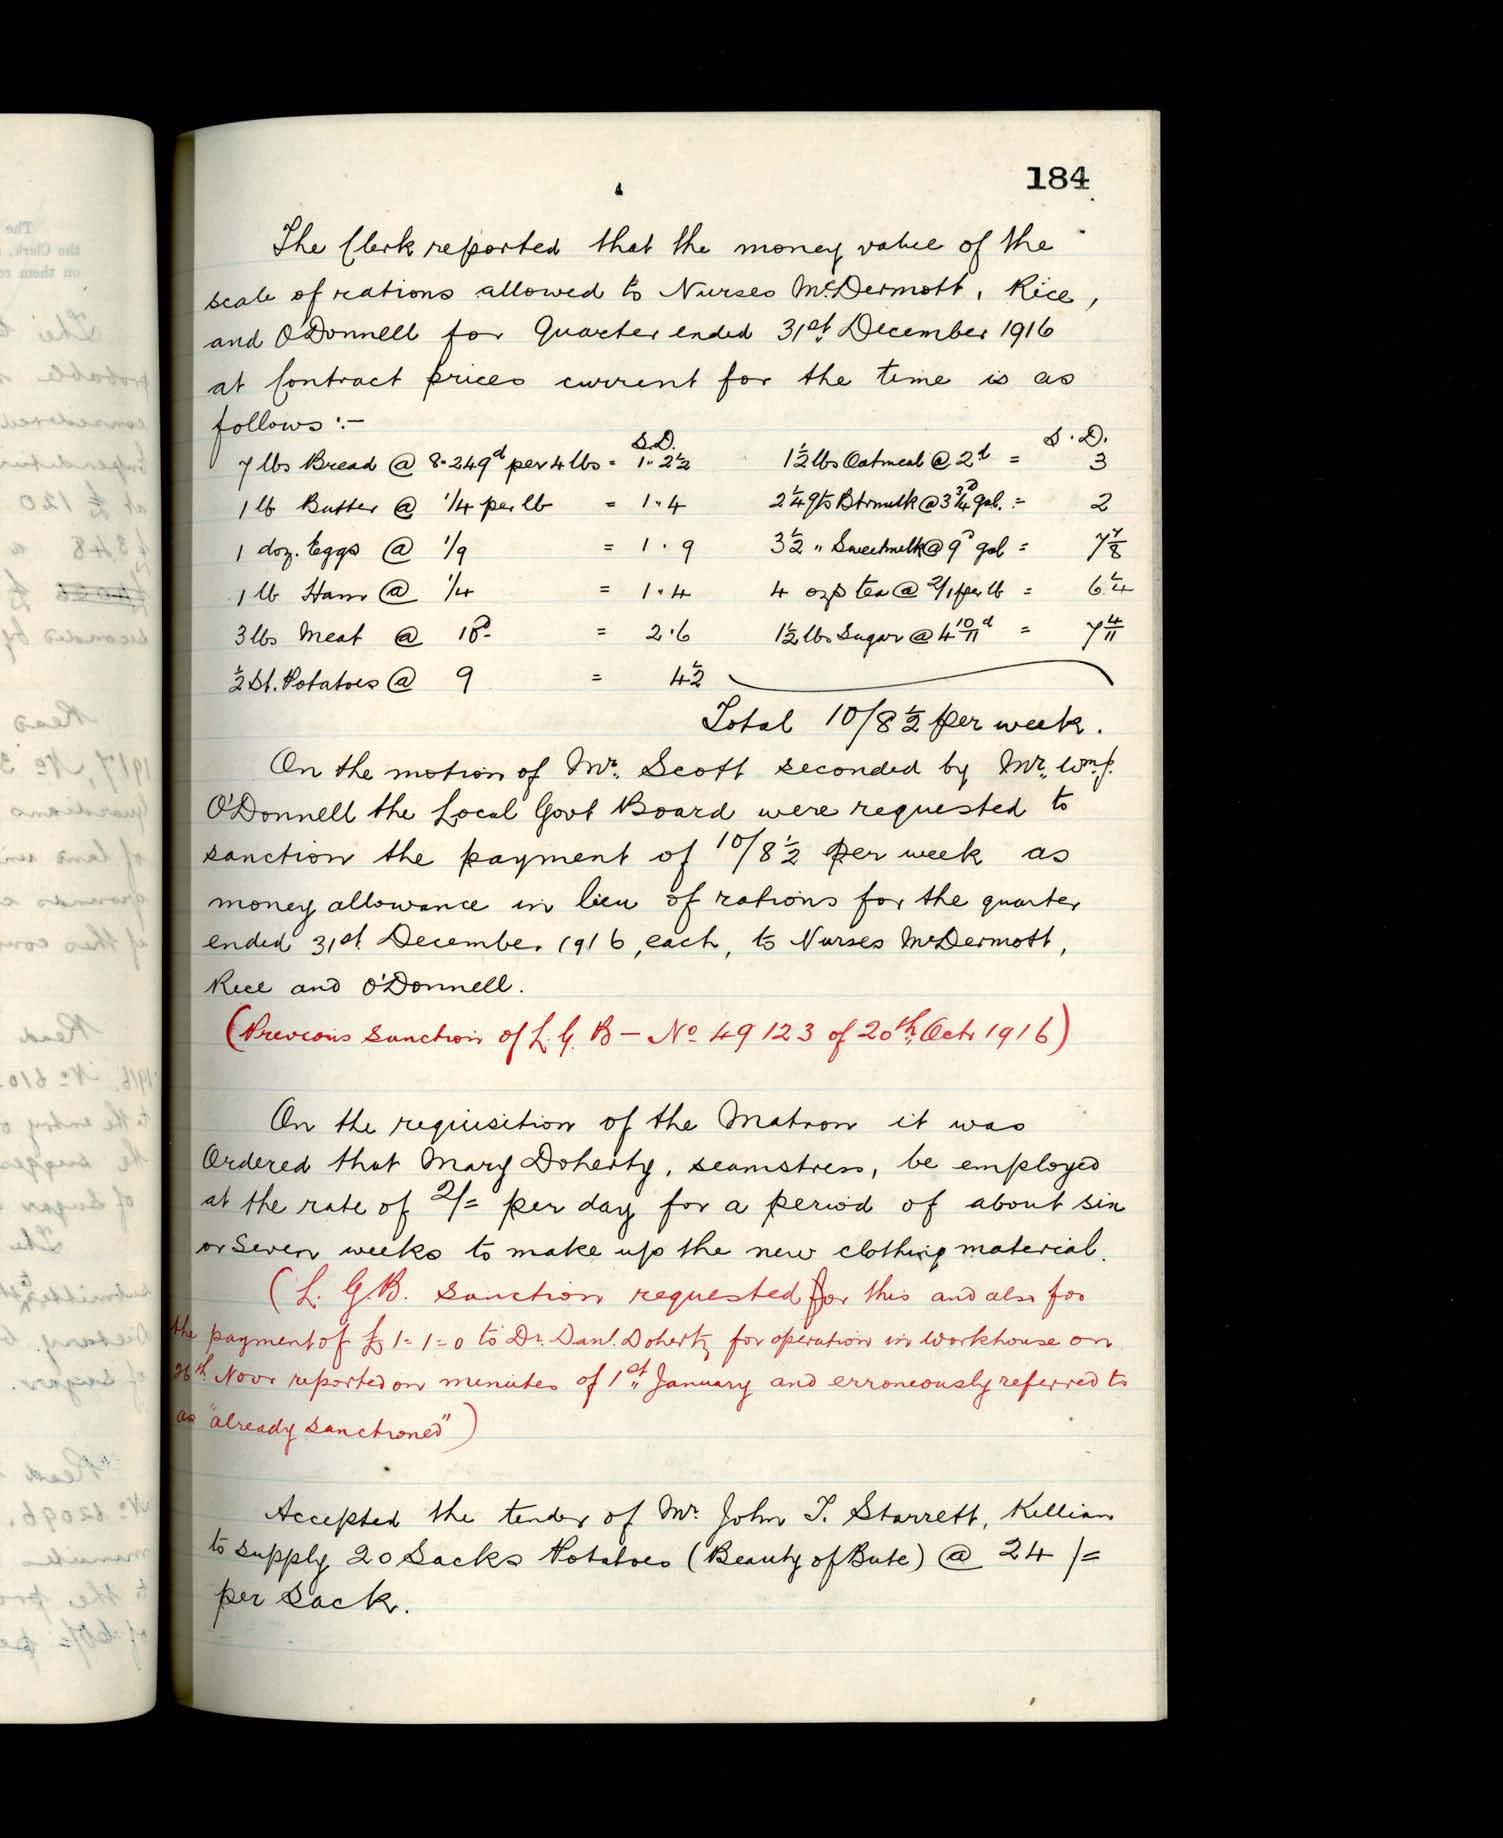 184
The Clerk reported that the money value of the
scale of rations allowed to Nurses McDermott, Rice,
and O'Donnell for Quarter ended 31st December 1916
at Contract prices current for the time is as
follows :-
S.D. S. D.
7 lbs Bread @ 8.249d per 4 lbs = 1.. 2½ 1½ lbs Oatmeal @ 2d = 3
1 lb Butter @ 1/4 per lb = 1.. 4 2¼ qts Btrmilk @ 3¾d gal. = 2
1 doz. Eggs @ 1/9 = 1 . 9 3½ " Sweetmilk @ 9d gal = 7⅞
1 lb Ham @ 1/4 = 1.. 4 4 ozs tea @ 2/1 per lb = 6¼
3 lbs Meat @ 10d = 2.6 1½ lbs Sugar @ 4 10/11 d = 7 4/11
½ St. Potatoes @ 9 = 4½
Total 10/8½ per week.
On the motion of Mr. Scott seconded by Mr. Wm. J.
O'Donnell the Local Govt Board were requested to
sanction the payment of 10/8½ per week as
money allowance in lieu of rations for the quarter
ended 31st December 1916, each, to Nurses McDermott,
Rice and O'Donnell.
(Previous Sanction of L. G. B – No 49123 of 20th Octr 1916)
On the requisition of the Matron it was
Ordered that Mary Doherty, seamstress, be employed
at the rate of 2/= per day for a period of about six
or seven weeks to make up the new clothing material.
(L. G.B. Sanction requested for this and also for
the payment of £1=1=0 to Dr. Danl. Doherty for operation in workhouse on
26th Novr reported on minutes of 1st January and erroneously referred to
as "already sanctioned")
Accepted the tender of Mr. John T. Starrett, Killian
to supply 20 Sacks Potatoes (Beauty of Bute) @ 24/=
per Sack.